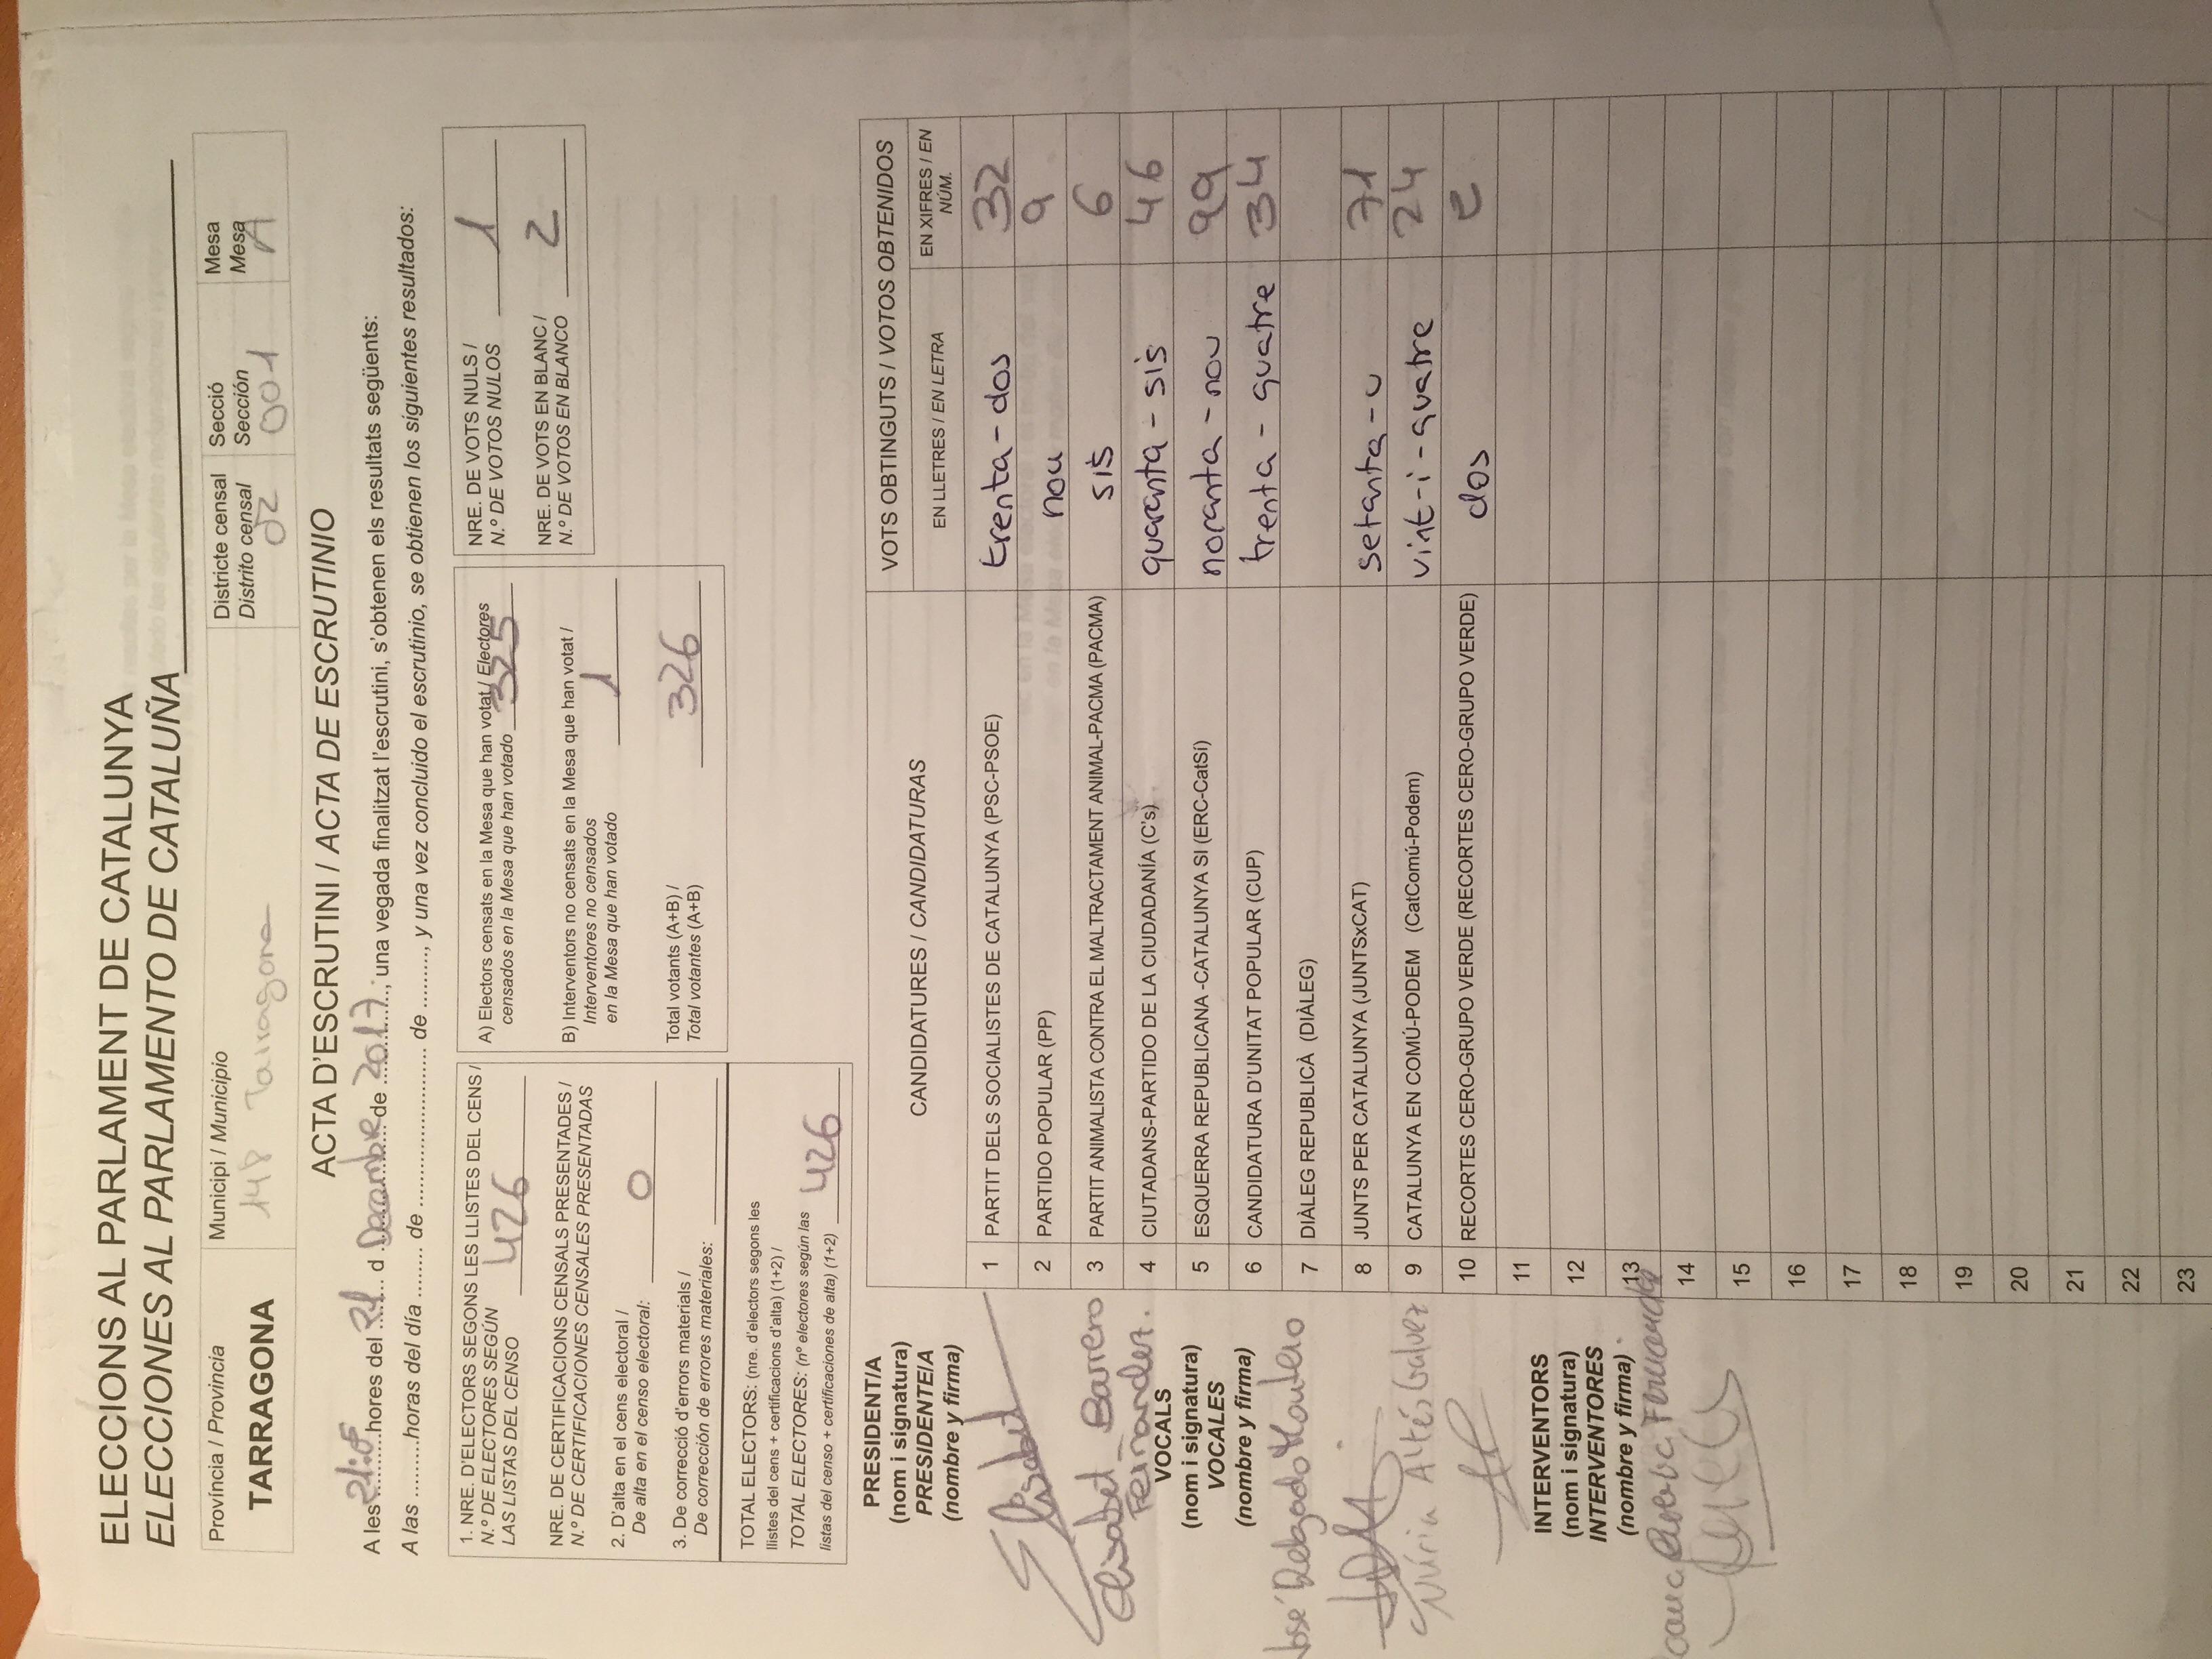 ELECCIONS AL PARLAMENT DE CATALUNYA
ELECCIONES AL PARLAMENTO DE CATALUÑA
Província / Provincia
TARRAGONA
Municipi / Municipio
148 Tarragona
Districte censal
Distrito censal
02
Secció
Sección
001
Mesa
Mesa
A
ACTA D'ESCRUTINI / ACTA DE ESCRUTINIO
A les ......... hores del 21 d Decembre de 2017, una vegada finalitzat l'escrutini, s'obtenen els resultats següents:
A las .........horas del día ........ de ......................... de ........., y una vez concluido el escrutinio, se obtienen los siguientes resultados:
1. NRE. D'ELECTORS SEGONS LES LLISTES DEL CENS /
N.º DE ELECTORES SEGÚN
LAS LISTAS DEL CENSO 426
NRE. DE CERTIFICACIONS CENSALS PRESENTADES /
N.º DE CERTIFICACIONES CENSALES PRESENTADAS
2. D'alta en el cens electoral /
De alta en el censo electoral: 0
3. De correcció d'errors materials /
De corrección de errores materiales:
TOTAL ELECTORS: (nre. d'electors segons les
llistes del cens + certificacions d'alta) (1+2) /
TOTAL ELECTORES: (nº electores según las
listas del censo + certificaciones de alta) (1+2) 426
A) Electors censats en la Mesa que han votat / Electores
censados en la Mesa que han votado 325
B) Interventors no censats en la Mesa que han votat /
Interventores no censados
en la Mesa que han votado 1
Total votants (A+B) /
Total votantes (A+B) 326
NRE. DE VOTS NULS /
N.º DE VOTOS NULOS 1
NRE. DE VOTS EN BLANC /
N.º DE VOTOS EN BLANCO 2
PRESIDENT/A
(nom i signatura)
PRESIDENTE/A
(nombre y firma)
Elisabet
Elisabet Barrero
Fernandez.
VOCALS
(nom i signatura)
VOCALES
(nombre y firma)
José Delgado Montero
Núria Altés Galvez
INTERVENTORS
(nom i signatura)
INTERVENTORES
(nombre y firma)
Fernandez
CANDIDATURES / CANDIDATURAS
VOTS OBTINGUTS / VOTOS OBTENIDOS
EN LLETRES / EN LETRA
EN XIFRES / EN
NÚM.
1 PARTIT DELS SOCIALISTES DE CATALUNYA (PSC-PSOE) trenta-dos 32
2 PARTIDO POPULAR (PP) nou 9
3 PARTIT ANIMALISTA CONTRA EL MALTRACTAMENT ANIMAL-PACMA (PACMA) sis 6
4 CIUTADANS-PARTIDO DE LA CIUDADANÍA (C's) quaranta - sis 46
5 ESQUERRA REPUBLICANA -CATALUNYA SI (ERC-CatSí) noranta - nou 99
6 CANDIDATURA D'UNITAT POPULAR (CUP) trenta - quatre 34
7 DIÀLEG REPUBLICÀ (DIÀLEG)
8 JUNTS PER CATALUNYA (JUNTSxCAT) setanta - u 71
9 CATALUNYA EN COMÚ-PODEM (CatComú-Podem) vint-i-quatre 24
10 RECORTES CERO-GRUPO VERDE (RECORTES CERO-GRUPO VERDE) dos 2
11
12
13
14
15
16
17
18
19
20
21
22
23